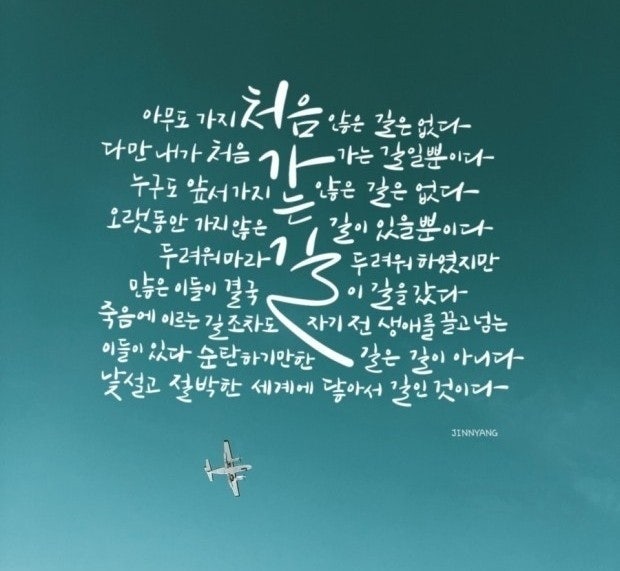 처음 가는 길
아무도 가지 않은 길은 없다
다만 내가 처음 가는 길일뿐이다
누구도 앞서 가지 않은 길은 없다
오랫동안 가지 않은 길이 있을뿐이다
두려워마라 두려워 하였지만
많은 이들이 결국 이 길을 갔다
죽음에 이르는 길조차도 자기 전 생애를 끌고 넘는
이들이 있다 순탄하기만한 길은 길이 아니다
낯설고 절박한 세계에 닿아서 길인 것이다
JINNYANG